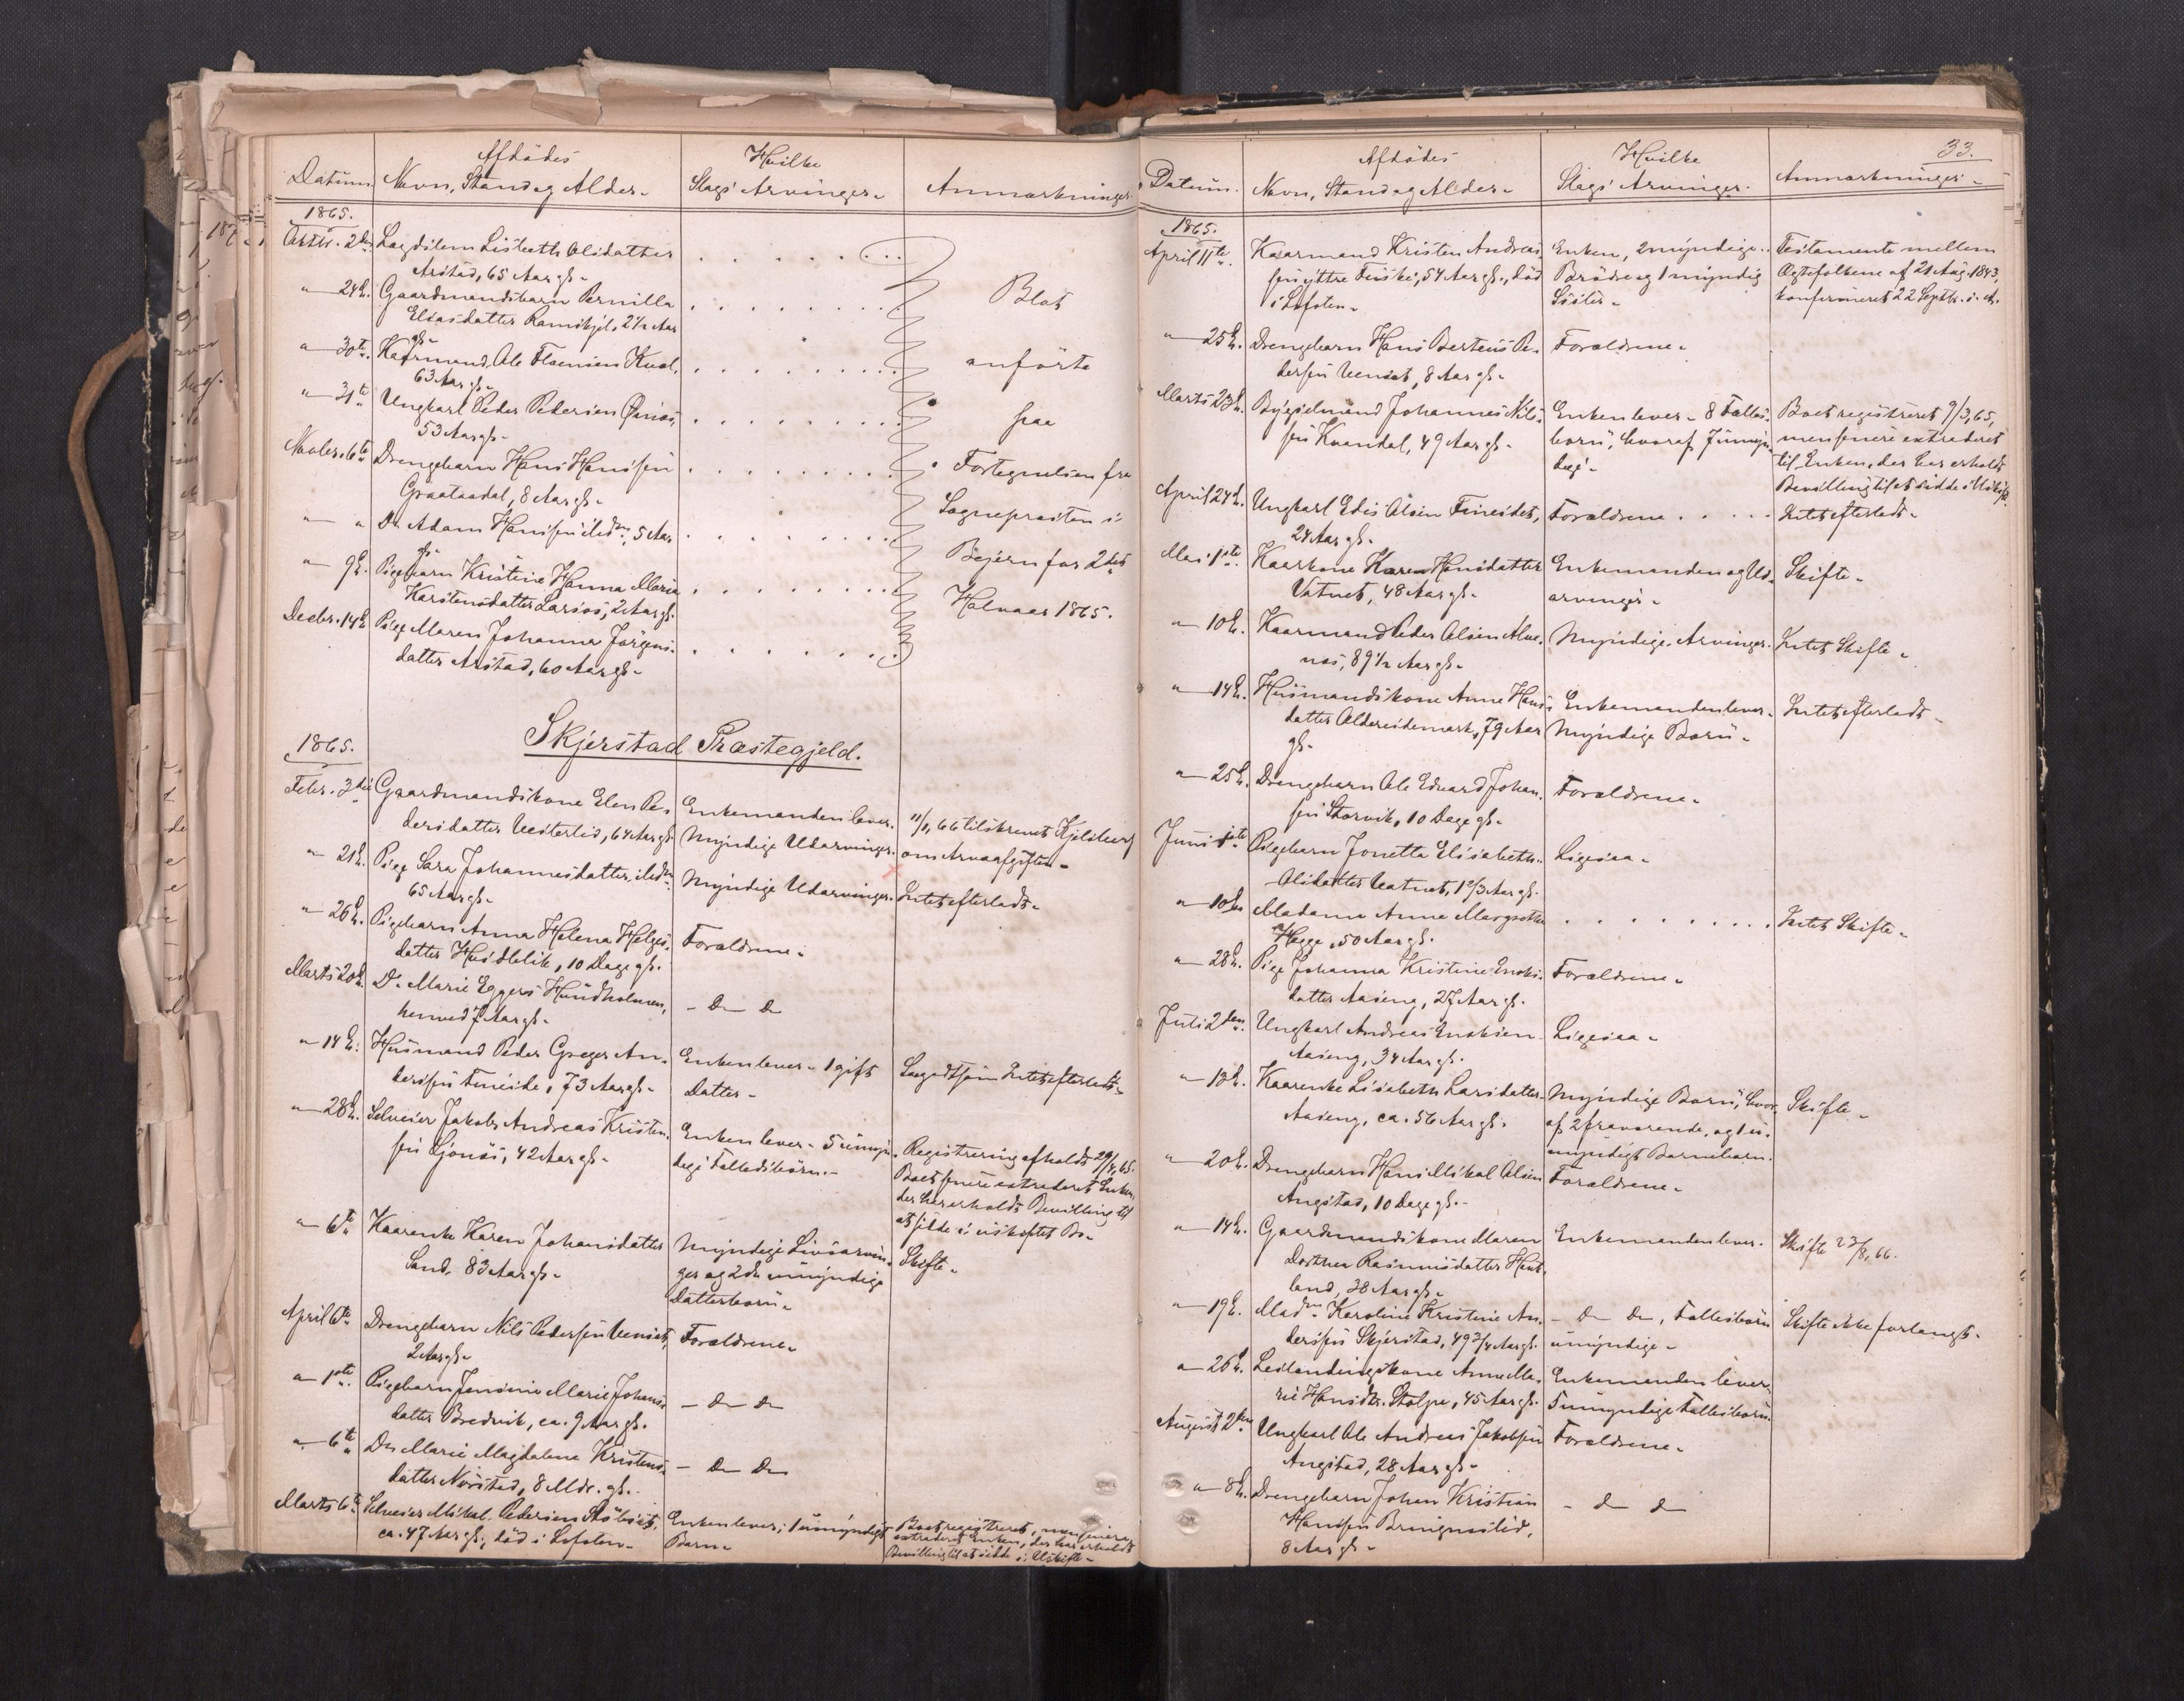 Datum.
Afdödes
Navn, Stand og Alder.
Hvilke
Slags Arvinger.
Anmærkninger.
1865.
Octbr. 2den Lægdslem Lisbeth Olsdatter
Arstad, 65 Aar gl.
" 24de. Gaardmandsbarn Pernilla
Eliasdatter Ramskjel, 2½ Aar
gl.
" 30te. Kaarmand Ole
63 Aar gl.
" 31te Ungkarl Peder Pedersen
53 Aar gl.
Novbr. 6te Drengebarn Hans Hanssen
Graataadal, 8 Aar gl.
" " Do. Adam Hanssen ibdm., 5 Aar
gl.
" 9de. Pigebarn Kristine Hanna Maria
Karstensdatter Larsos, 2 Aar gl.
Decbr. 14de Pige Maren Johanna Jörgens-
datter Arstad, 60 Aar gl.
Blot
anförte
paa
Fortegnelsen fra
Sognepresten i
Bejern for 2det
Halvaar 1865.
Skjerstad Præstegjeld.
1865.
Febr. 3die Gaardmandskone Elen Pe-
dersdatter Vesterlid, 64 Aar gl.
Enkemanden lever.
Myndige Udarvinger.
11/1, 66 tilskrevet Kjelsberg
om Arveafgiften.
" 21de. Pige Sara Johannesdatter, ibdm.
65 Aar gl.
Myndige Udarvinger. Intet efterladt.
" 26de. Pigebarn Anna Helena Helges-
datter Husdlelik, 10 Dage gl.
Forældrene.
Marts 20de Do. Marie Eggers Hundholmen,
henved 7 Aar gl.
- Do Do
" 14de. Husmand Peder Greger An-
derssen Fineide, 73 Aar gl.
Enken lever. 1 gift
Datter.
Saagodtsom Intet efterladt.
" 28de. Selveier Jakob Andreas Kristen-
sen Ljönæs, 42 Aar gl.
Enken lever. 5 umyn-
dige Fællesbörn.
Registrering afholdt 29/4, 65.
Boet senere extraderet Enken,
der har erholdt Bevilling til
at sidde i uskiftet Bo.
" 6te Kaarenke Karen Johansdatter
Sand, 83 Aar gl.
Myndige Livsarvin-
ger og 2de umyndige
Datterbörn.
Skifte.
April 6te Drengebarn Nils Pederssen Venset,
2 Aar gl.
Forældrene.
" 1ste. Pigebarn Jensine Marie Johans-
datter Bredvik, ca. 9 Aar gl.
- Do Do
" 6te Do Marie Magdalene Kristens-
datter Növstad, 8 Mdr. gl.
- Do Do
Marts 6te. Selveier Mikal Pedersen
ca. 47 Aar gl., död i Lofoten.
Enken lever; 1 umyndigt
Barn.
Boet registreret, men senere
extraderet Enken, der har erholdt
Bevilling til at sidde i Uskifte.
33.
Datum.
Afdödes
Navn, Stand og Alder.
Hvilke
Slags Arvinger.
Anmærkninger.
1865.
April 11te. Kaarmand Kristen Andreas-
sen yttre Finske, 54 Aar gl., död
i Lofoten.
Enken, 2 myndige
Brödre og 1 myndig
Söster.
Testamente mellem
Ægtefolkene af 21 Aug. 1843,
konfirmeret 22 Septbr. s. A.
" 25de. Drengebarn Hans Berteus Pe-
derssen Venset, 8 Aar gl.
Forældrene.
Marts 23de. Bygselmand Johannes Nils-
sen Kvandal, 49 Aar gl.
Enken lever. 8 Fælles-
börn, hvoraf 7 umyn-
dige.
Boet registreret 9/3, 65,
men senere extraderet
til Enken, der har erholdt
Bevilling til at sidde i Uskifte.
April 24de. Ungkarl Edis Olsen Fineidet,
24 Aar gl.
Forældrene . . . . . Intet efterladt.
Mai 1ste. Kaarkone Karen Hansdatter
Vatnet, 48 Aar gl.
Enkemanden og Ud-
arvinger.
Skifte.
" 10de. Kaarmand Peder Olsen Alve-
næs, 89½ Aar gl.
Myndige Arvinger. Intet Skifte.
" 14de. Husmandskone Anne Hans-
datter Aldereidemark, 79 Aar
gl.
Enkemanden lever.
Myndige Börn.
Intet efterladt.
" 25de. Drengebarn Ole Edvard Johan-
sen Storvik, 10 Dage gl.
Forældrene.
Juni 1ste. Pigebarn Jonetta Elisabeth
Olsdatter Vatnet, 1 2/3 Aar gl.
Ligesaa.
" 10de Madame Anna Margrethe
Hegge, 50 Aar gl.
. . . . . . . . Intet Skifte.
" 28de. Pige Johanna Kristine Enoks-
datter Aaseng, 27 Aar gl.
Forældrene.
Juli 2den. Ungkarl Andreas Enoksen
Aaseng, 34 Aar gl.
Ligesaa.
" 13de. Kaarenke Lisabeth Larsdatter
Aaseng, ca. 56 Aar gl.
Myndige Börn, hvor-
af 2 fraværende, og 1 u-
myndigt Barnebarn.
Skifte.
" 20de. Drengebarn Hans Mikal Olsen
Angstad, 10 Dage gl.
Forældrene.
" 14de. Gaardmandskone Maren
Dorthea Rasmusdatter Hest-
land, 38 Aar gl.
Enkemanden lever. Skifte 23/8, 66.
" 19de. Madm. Karoline Kristine An-
derssen Skjerstad, 49 3/4 Aar gl.
- Do Do, Fællesbörn
umyndige.
Skifte ikke forlangt.
" 26de. Leilendingskone Anne Ma-
rie Hansdtr. Stolpe, 45 Aar gl.
Enkemanden lever.
5 umyndige Fællesbörn.
August 2den Ungkarl Ole Andreas Jakobsen
Angstad, 28 Aar gl.
Forældrene.
" 8de. Drengebarn Johan Kristian
Hanssen Bringneslid,
8 Aar gl.
- Do Do